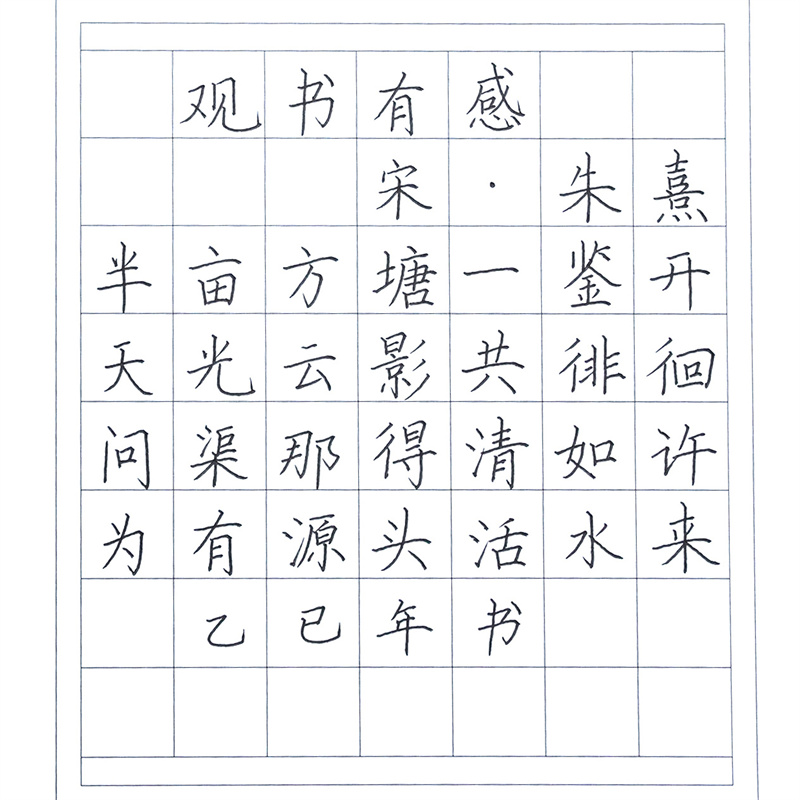 观书有感
宋·朱熹
半亩方塘一鉴开
天光云影共徘徊
问渠那得清如许
为有源头活水来
乙巳年书